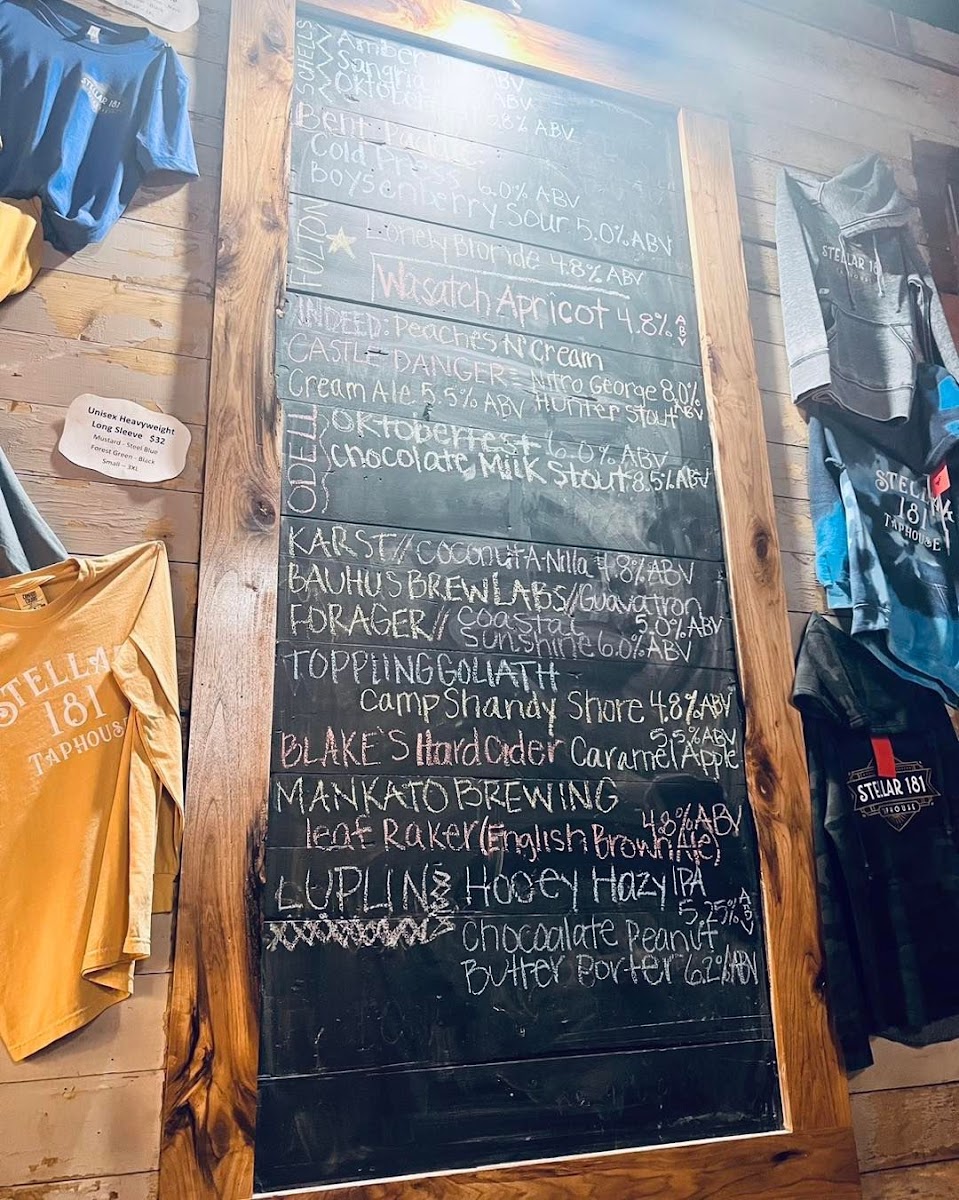 SCHELL'S
Amber ABV
Sangria ABV
Oktober 5.8% ABV
Bent Paddle:
Cold Press 6.0% ABV
Boysenberry Sour 5.0% ABV
FULTON
Lonely Blonde 4.8% ABV
Wasatch Apricot 4.8% ABV
INDEED: Peaches N' Cream
CASTLE DANGER: Nitro George 8.0%
Cream Ale 5.5% ABV Hunter Stout ABV
ODELL
Oktoberfest 6.0% ABV
Chocolate Milk Stout 8.5% ABV
KARST// Coconut A-Nilla 4.8% ABV
BAUHUS BREW LABS// Guavatron
5.0% ABV
FORAGER// Coastal
Sunshine 6.0% ABV
TOPPLING GOLIATH
Camp Shandy Shore 4.8% ABV
5.5% ABV
BLAKE'S Hard Cider Caramel Apple
MANKATO BREWING
4.8% ABV
Leaf Raker (English Brown Ale)
LUPLIN Hooey Hazy IPA
5.25% ABV
Chocoalate Peanut
Butter Porter 6.2% ABV
STELLAR 181
Unisex Heavyweight
Long Sleeve $32
Mustard - Steel Blue
Forest Green - Black
Small - 3XL
STELLAR
181
TAPHOUSE
STELLAR 181
STELLAR
181
TAPHOUSE
STELLAR 181